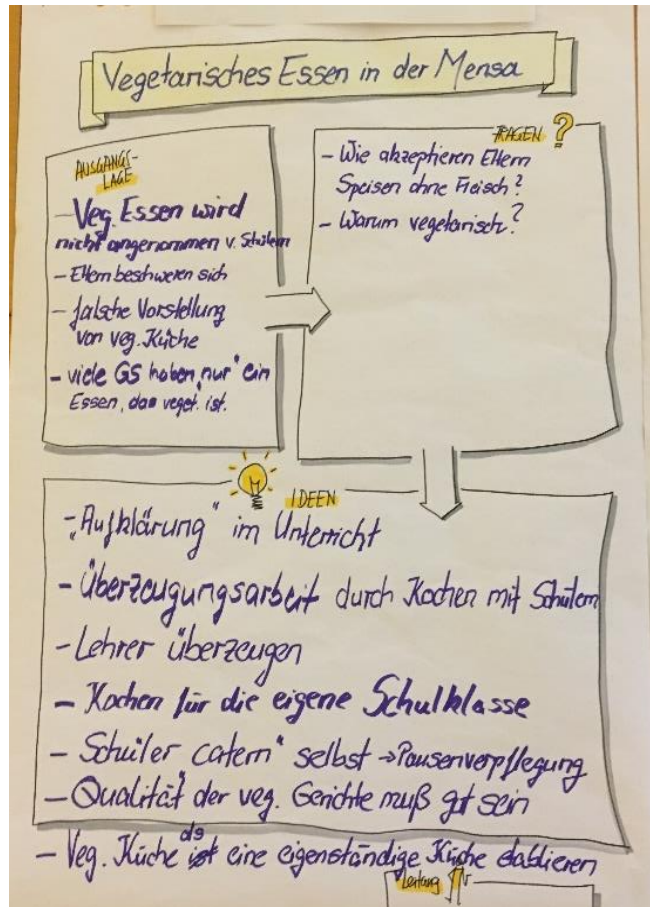 Vegetarisches Essen in der Mensa
AUSGANGS-
LAGE
- Veg. Essen wird
nicht angenommen v. Schülern
- Eltern beschweren sich
- falsche Vorstellung
von veg. Küche
- viele GS haben "nur" ein
Essen, das veget. ist.
FRAGEN ?
- Wie akzeptieren Eltern
Speisen ohne Fleisch?
- Warum vegetarisch?
IDEEN
- "Aufklärung" im Unterricht
- Überzeugungsarbeit durch Kochen mit Schülern
- Lehrer überzeugen
- Kochen für die eigene Schulklasse
- Schüler "catern" selbst → Pausenverpflegung
- Qualität der veg. Gerichte muß gut sein
- Veg. Küche als eine eigenständige Küche etablieren
Leitung